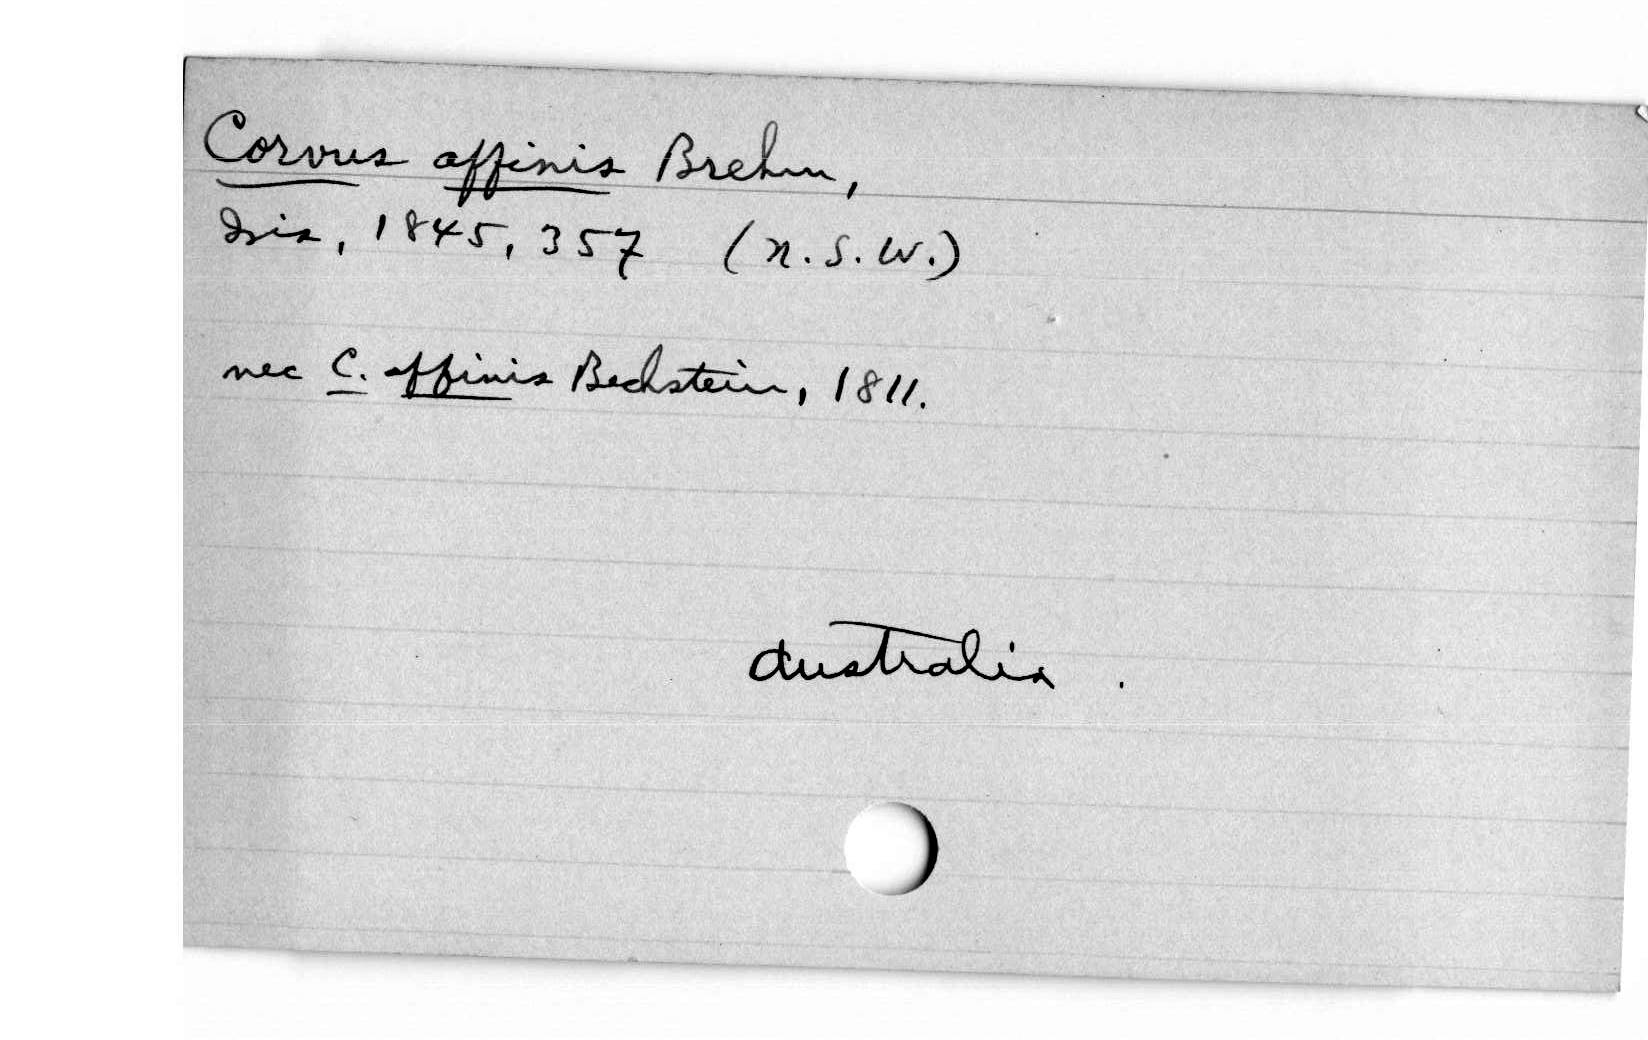 Corvus affinis Brehm,
Isis, 1845, 357 (N.S.W.)
nec C. affinis Bechstein, 1811.
Australia.